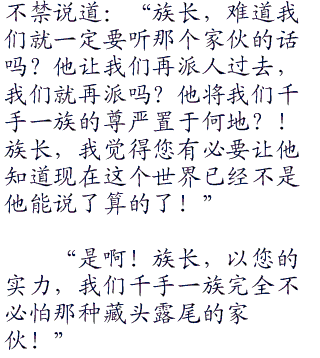 不禁说道：“族长，难道我
们就一定要听那个家伙的话
吗？他让我们再派人过去，
我们就再派吗？他将我们千
手一族的尊严置于何地？！
族长，我觉得您有必要让他
知道现在这个世界已经不是
他能说了算的了！”
“是啊！族长，以您的
实力，我们千手一族完全不
必怕那种藏头露尾的家
伙！”